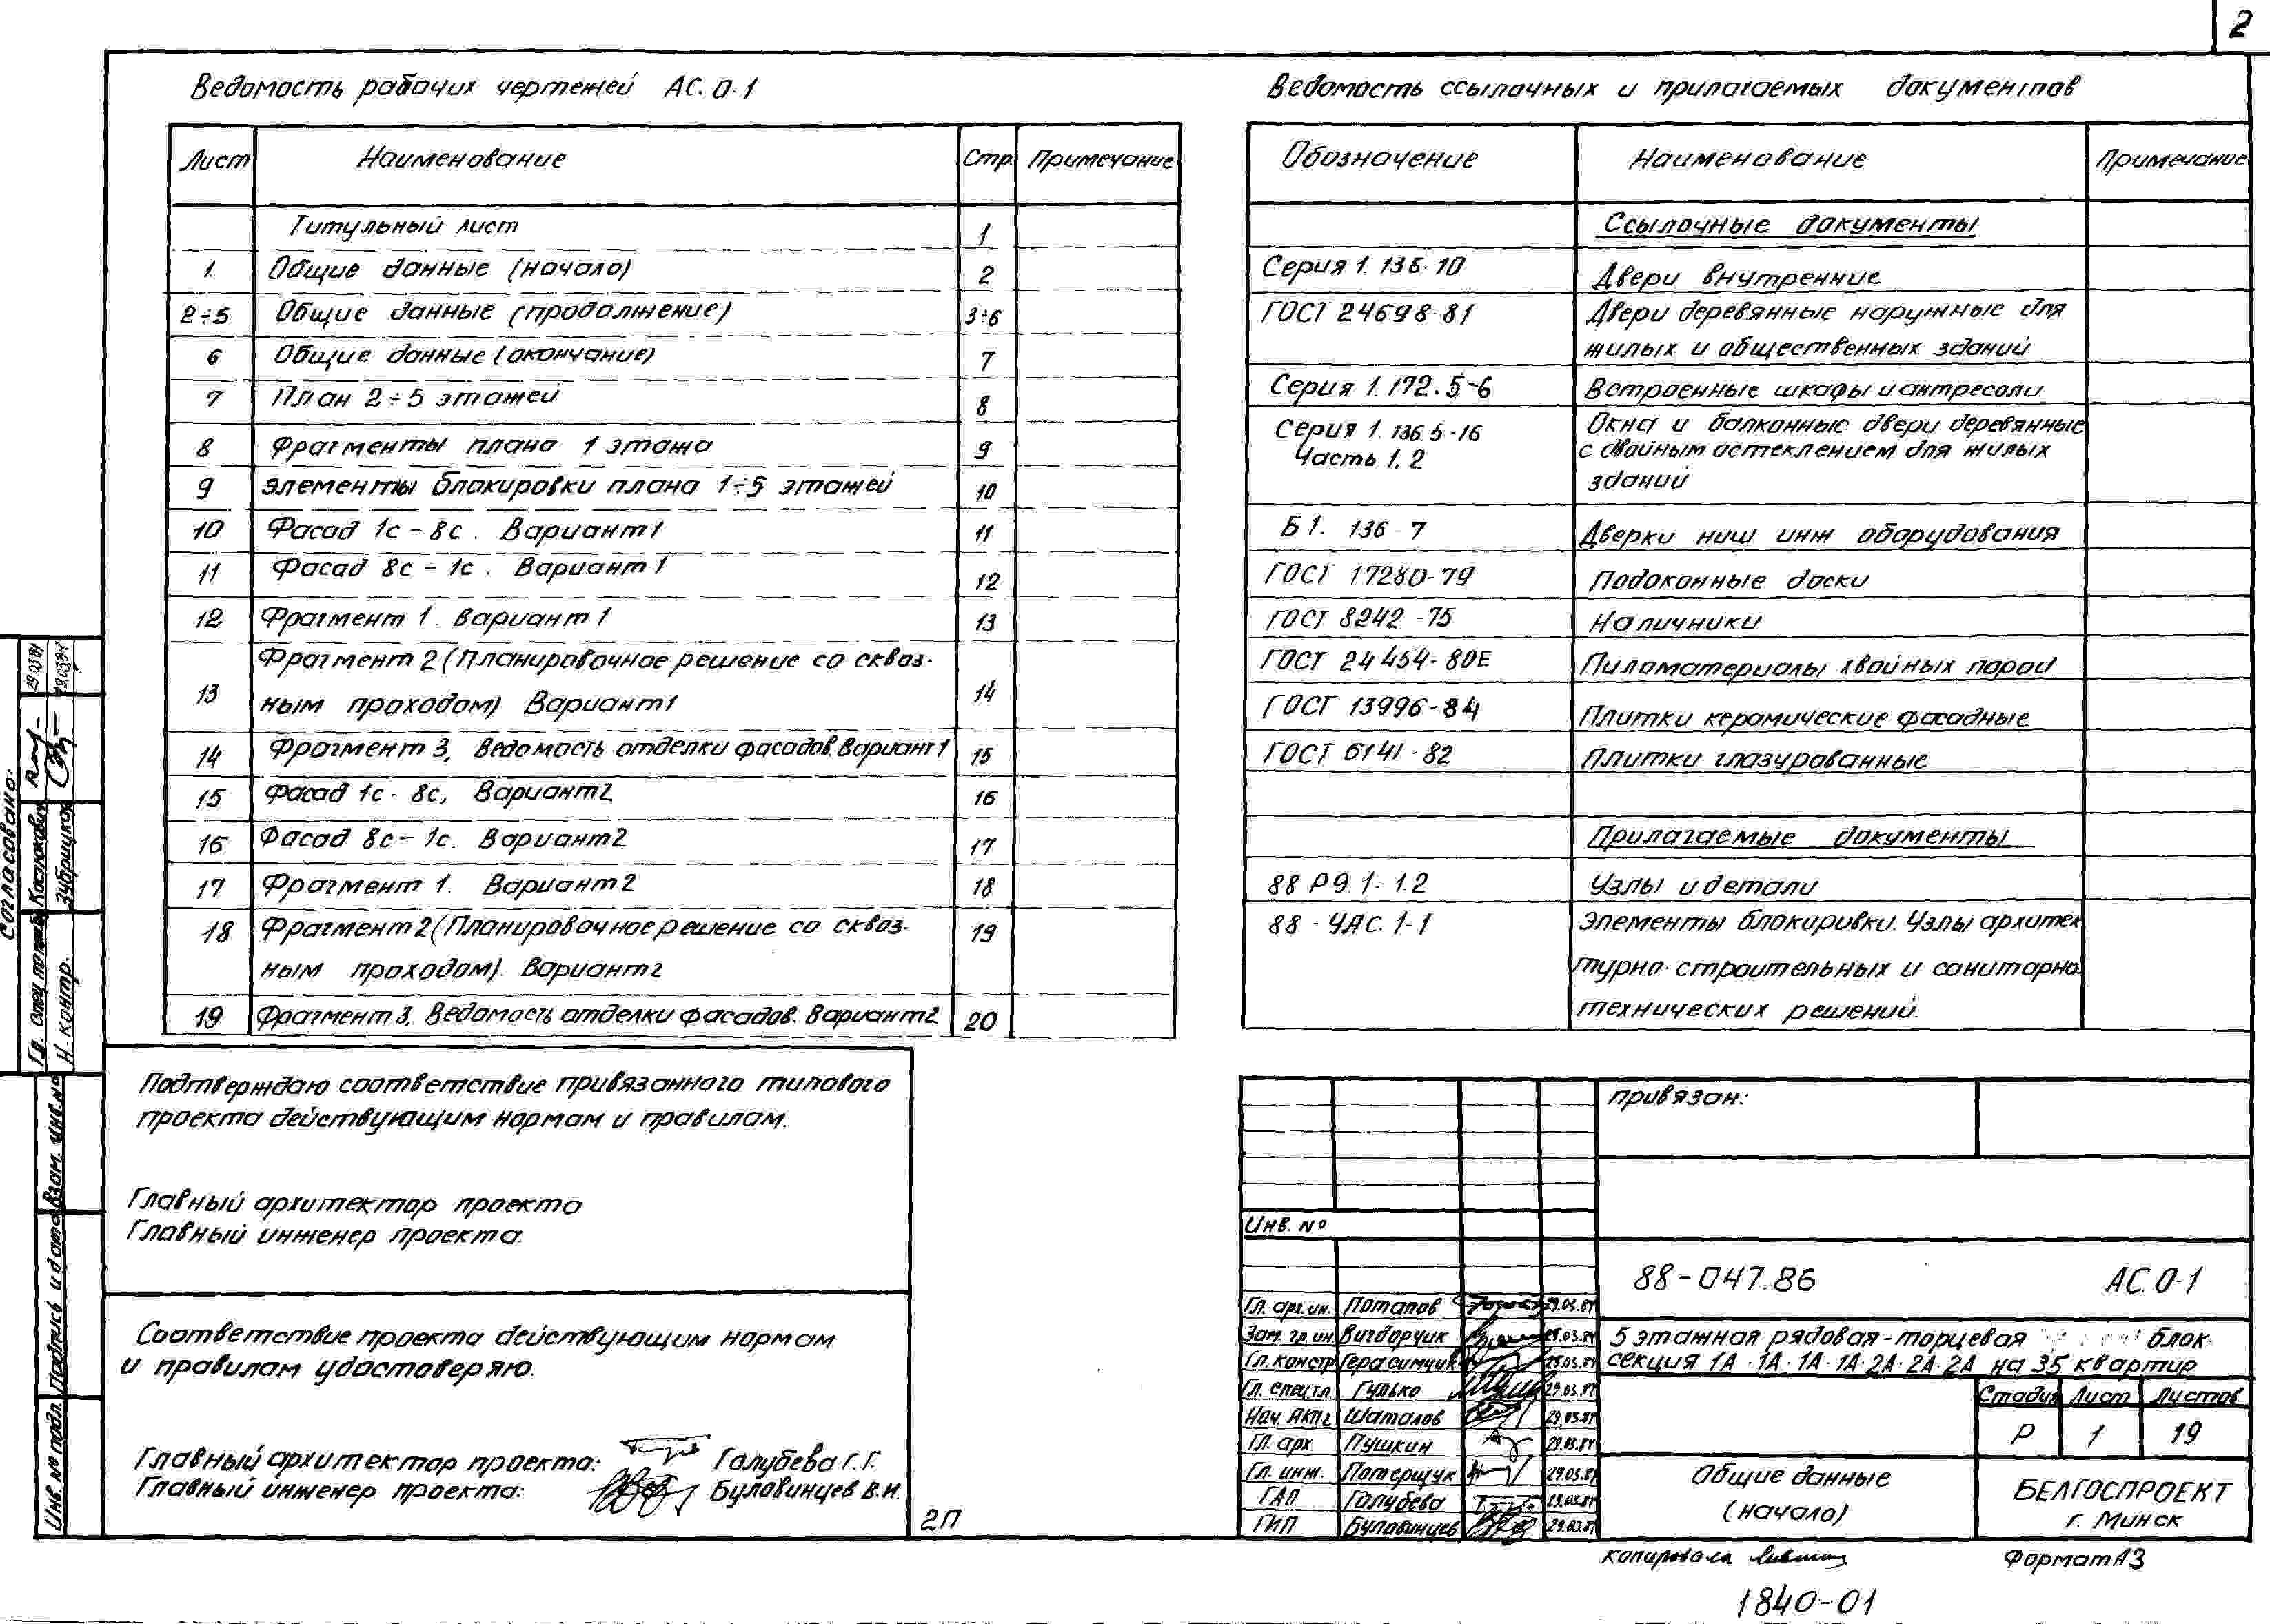 2
Ведомость рабочих чертежей АС.0-1
Лист Наименование Стр. Примечание
Титульный лист 1
1 Общие данные (начало) 2
2÷5 Общие данные (продолжение) 3÷6
6 Общие данные (окончание) 7
7 План 2÷5 этажей 8
8 Фрагменты плана 1 этажа 9
9 элементы блокировки плана 1÷5 этажей 10
10 Фасад 1с - 8с. Вариант 1 11
11 Фасад 8с - 1с. Вариант 1 12
12 Фрагмент 1. Вариант 1 13
Фрагмент 2 (Планировочное решение со сквоз-
13 ным проходом) Вариант 1 14
14 Фрагмент 3, Ведомость отделки фасадов. Вариант 1 15
15 Фасад 1с - 8с, Вариант 2 16
16 Фасад 8с - 1с. Вариант 2 17
17 Фрагмент 1. Вариант 2 18
18 Фрагмент 2 (Планировочное решение со сквоз- 19
ным проходом). Вариант 2
19 Фрагмент 3, Ведомость отделки фасадов. Вариант 2 20
Ведомость ссылочных и прилагаемых документов
Обозначение Наименование Примечание
Ссылочные документы
Серия 1.136-10 Двери внутренние
ГОСТ 24698-81 Двери деревянные наружные для
жилых и общественных зданий
Серия 1.172.5-6 Встроенные шкафы и антресоли
Серия 1.136.5-16 Окна и балконные двери деревянные
Часть 1.2 с двойным остеклением для жилых
зданий
Б1.136-7 Дверки ниш инж оборудования
ГОСТ 17280-79 Подоконные доски
ГОСТ 8242-75 Наличники
ГОСТ 24454-80Е Пиломатериалы хвойных пород
ГОСТ 13996-84 Плитки керамические фасадные
ГОСТ 6141-82 Плитки глазурованные
Прилагаемые документы
88 Р9.1-1.2 Узлы и детали
88-ЧАС.1-1 Элементы блокировки. Узлы архитек
турно-строительных и санитарно-
технических решений.
Согласовано:
Гл. спец Каслокавич 29.03.84
Н. контр. Зубрицкая 29.03.84
Взам. инв. №
Подпись и дата
Инв. № подл.
Подтверждаю соответствие привязанного типового
проекта действующим нормам и правилам.
Главный архитектор проекта
Главный инженер проекта.
Соответствие проекта действующим нормам
и правилам удостоверяю.
Главный архитектор проекта: Голубева Г.Г.
Главный инженер проекта: Булавинцев В.И.
2П
привязан:
Инв. №
88-047.86 АС.0-1
Гл. арх.ин. Потапов 29.03.84
Зам. гл.ин. Вигдорчик 29.03.84
Гл. констр Герасимчик 29.03.84
Гл. спец.тл. Гулько 29.03.84
Нач. АКП2 Шаталов 29.03.84
Гл. арх Пушкин 29.03.84
Гл. инж. Потерщук 29.03.84
ГАП Голубева 29.03.84
ГИП Булавинцев 29.03.84
5 этажная рядовая-торцевая блок-
секция 1А·1А·1А·1А·2А·2А·2А на 35 квартир
Стадия Лист Листов
Р 1 19
Общие данные
(начало)
БЕЛГОСПРОЕКТ
г. Минск
копировала
Формат А3
1840-01